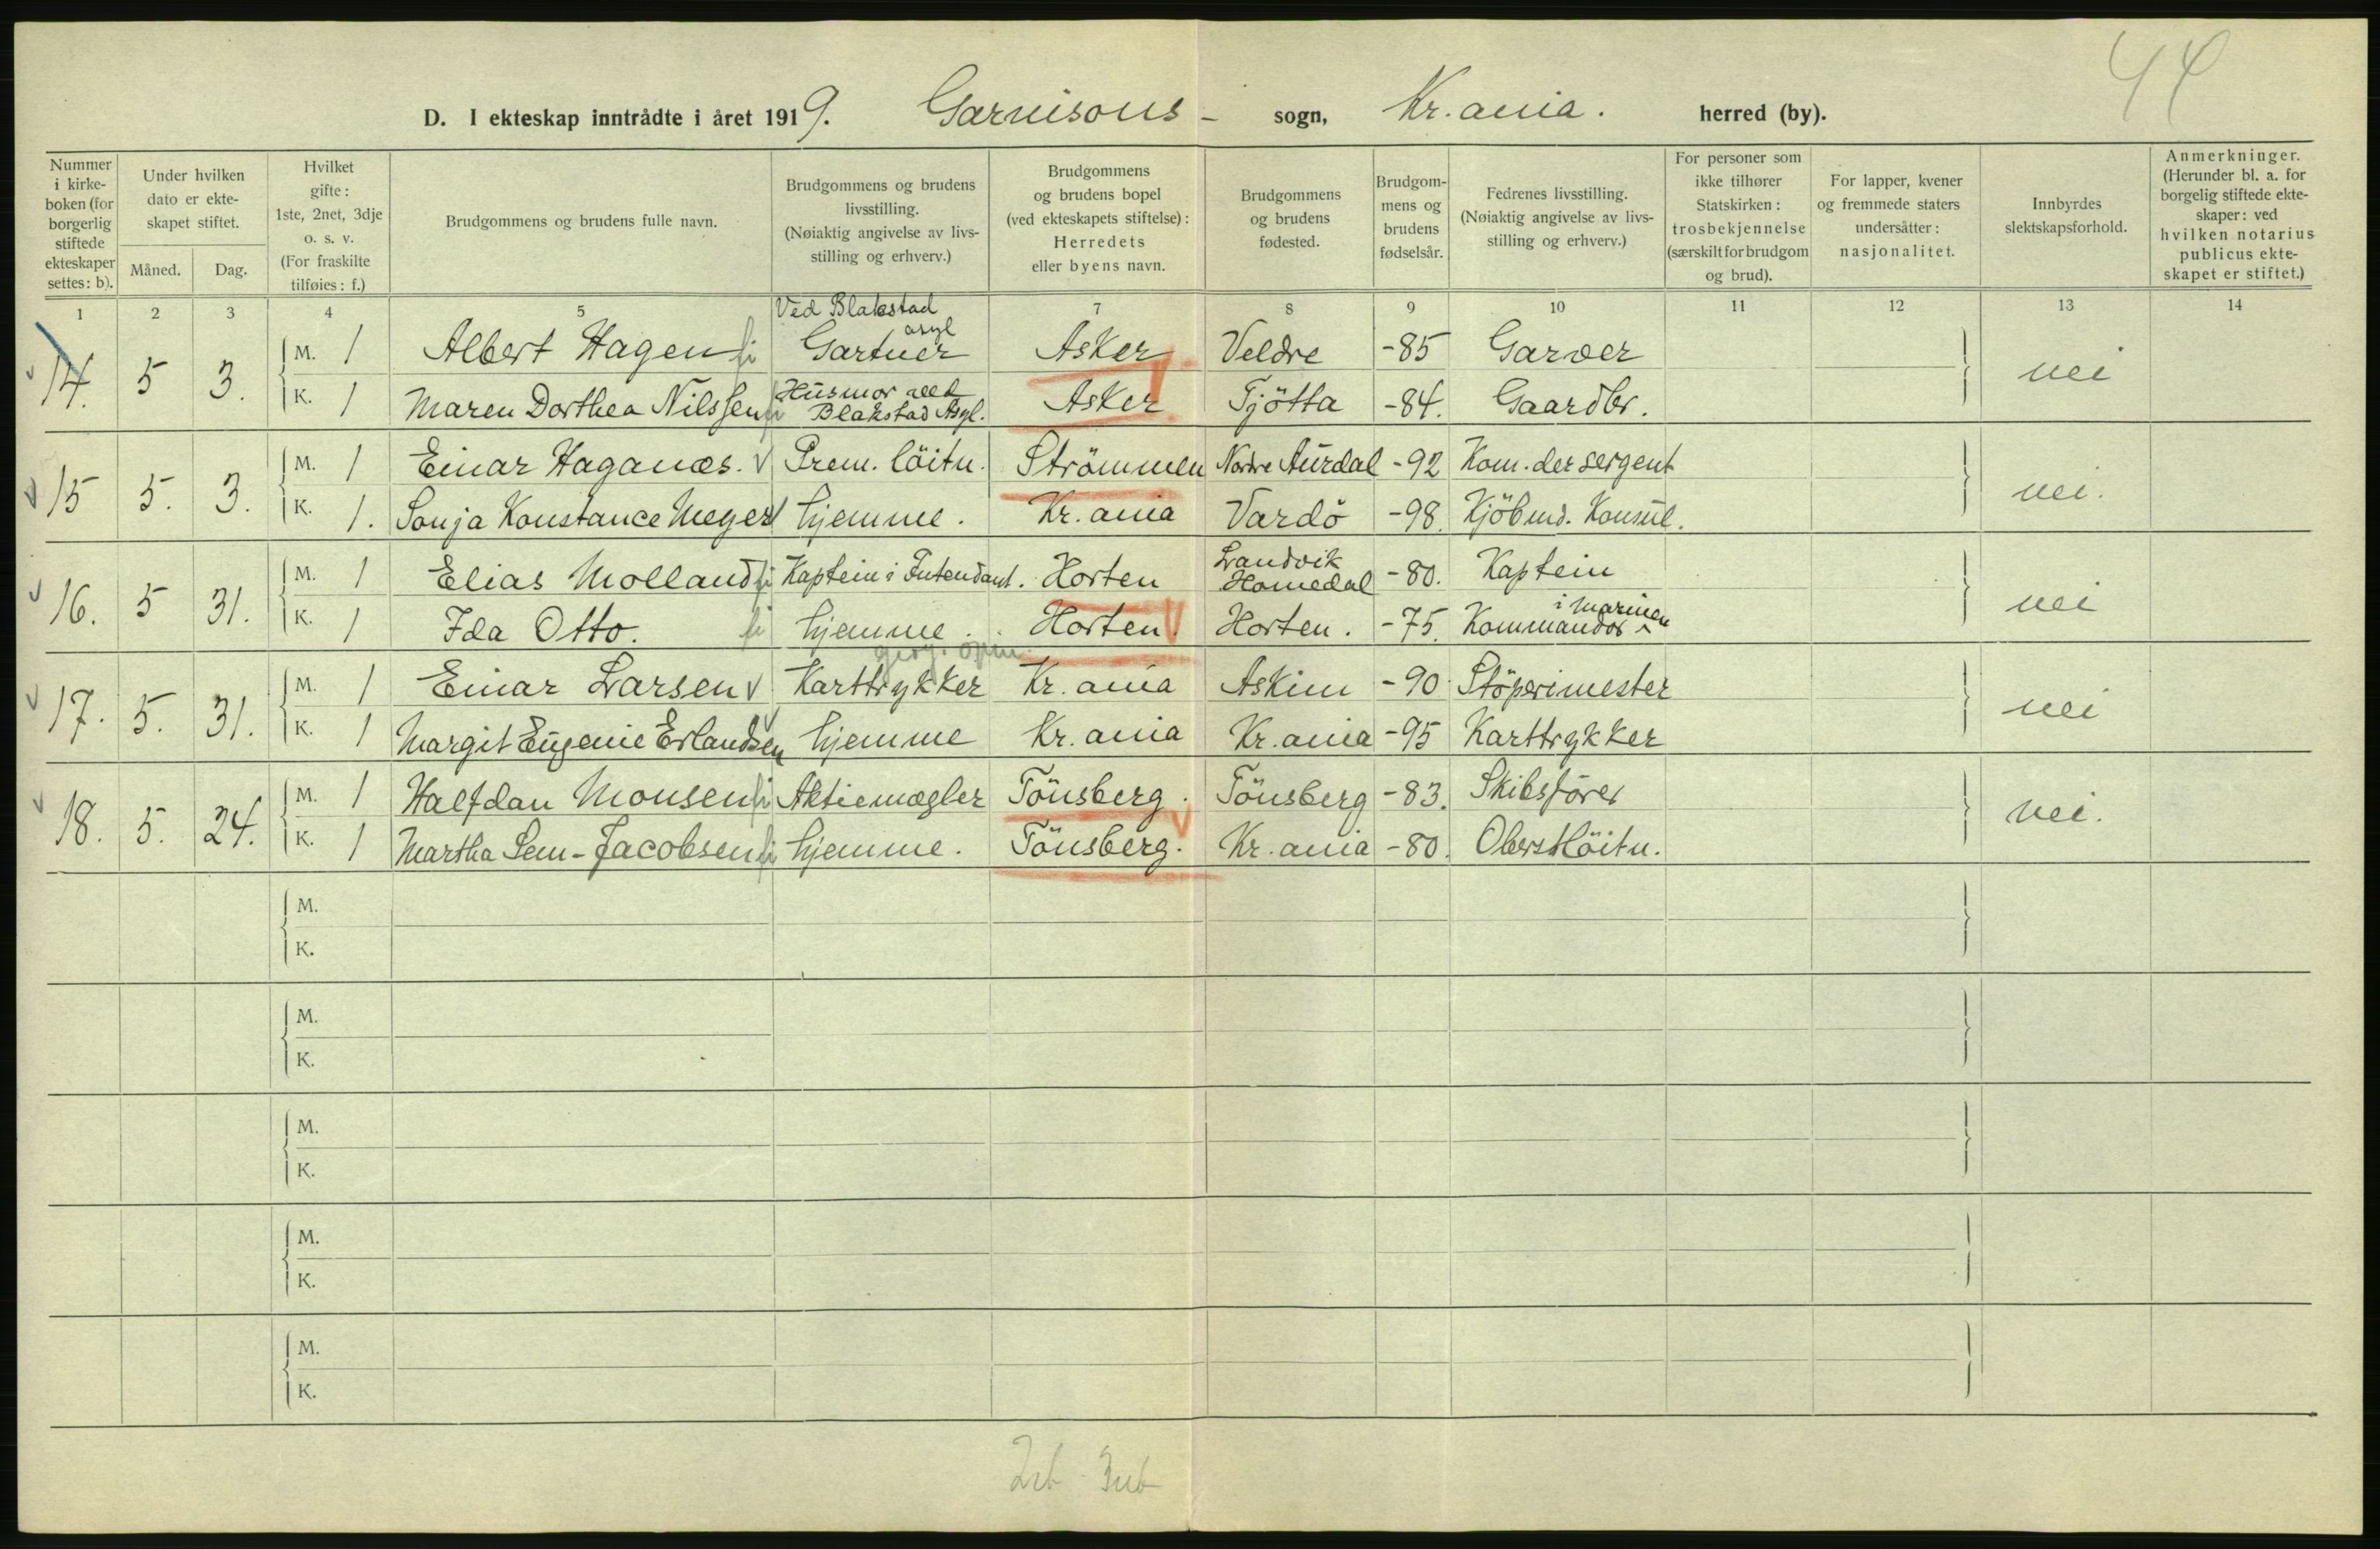 44
D. I ekteskap inntrådte i året 1919. Garnisons- sogn, Kr.ania. herred (by).
Nummer i kirke- boken (for borgerlig stiftede ekteskaper settes: b).
Under hvilken dato er ekte- skapet stiftet.
Måned. Dag.
Hvilket gifte: 1ste, 2net, 3dje o. s. v. (For fraskilte tilføies: f.)
Brudgommens og brudens fulle navn.
Brudgommens og brudens livsstilling. (Nøiaktig angivelse av livs- stilling og erhverv.)
Brudgommens og brudens bopel (ved ekteskapets stiftelse): Herredets eller byens navn.
Brudgommens og brudens fødested.
Brudgom- mens og brudens fødselsår.
Fedrenes livsstilling. (Nøiaktig angivelse av livs- stilling og erhverv.)
For personer som ikke tilhører Statskirken: trosbekjennelse (særskilt for brudgom og brud).
For lapper, kvener og fremmede staters undersåtter: nasjonalitet.
Innbyrdes slektskapsforhold.
Anmerkninger. (Herunder bl. a. for borgelig stiftede ekte- skaper: ved hvilken notarius publicus ekte- skapet er stiftet.)
1 2 3 4 5 6 7 8 9 10 11 12 13 14
14. 5 3. M. 1 Albert Hagen Ved Blakstad asyl Gartner Asker Veldre -85 Garver nei
K. 1 Maren Dorthea Nilssen Husmor ved Blakstad Asyl. Asker Tjötta -84. Gaardbr.
15 5. 3. M. 1 Einar Haganæs. Prem. löitn. Strömmen Nordre Aurdal -92 Kom.dersergent nei.
K. 1. Sonja Konstance Meyer hjemme. Kr.ania Vardö -98. Kjöbmd. Konsul.
16. 5 31. M. 1 Elias Molland Kaptein i Intendant. Horten Landvik Homedal -80. Kaptein nei
K. 1 Ida Otto. hjemme. Horten. Horten. -75. Kommandör i marinen
17. 5. 31. M. 1 Einar Larsen Karttrykker geogr. opm. Kr.ania Askim -90 Stöperimester nei
K. 1 Margit Eugenie Erlandsen hjemme Kr.ania Kr.ania -95 Karttrykker
18. 5. 24. M. 1 Halfdan Monsen Aktiemægler Tönsberg. Tönsberg -83. Skibsförer nei.
K. 1 Martha Sem-Jacobsen hjemme. Tönsberg. Kr.ania -80. Oberstlöitn.
M.
K.
M.
K.
M.
K.
M.
K.
M.
K.